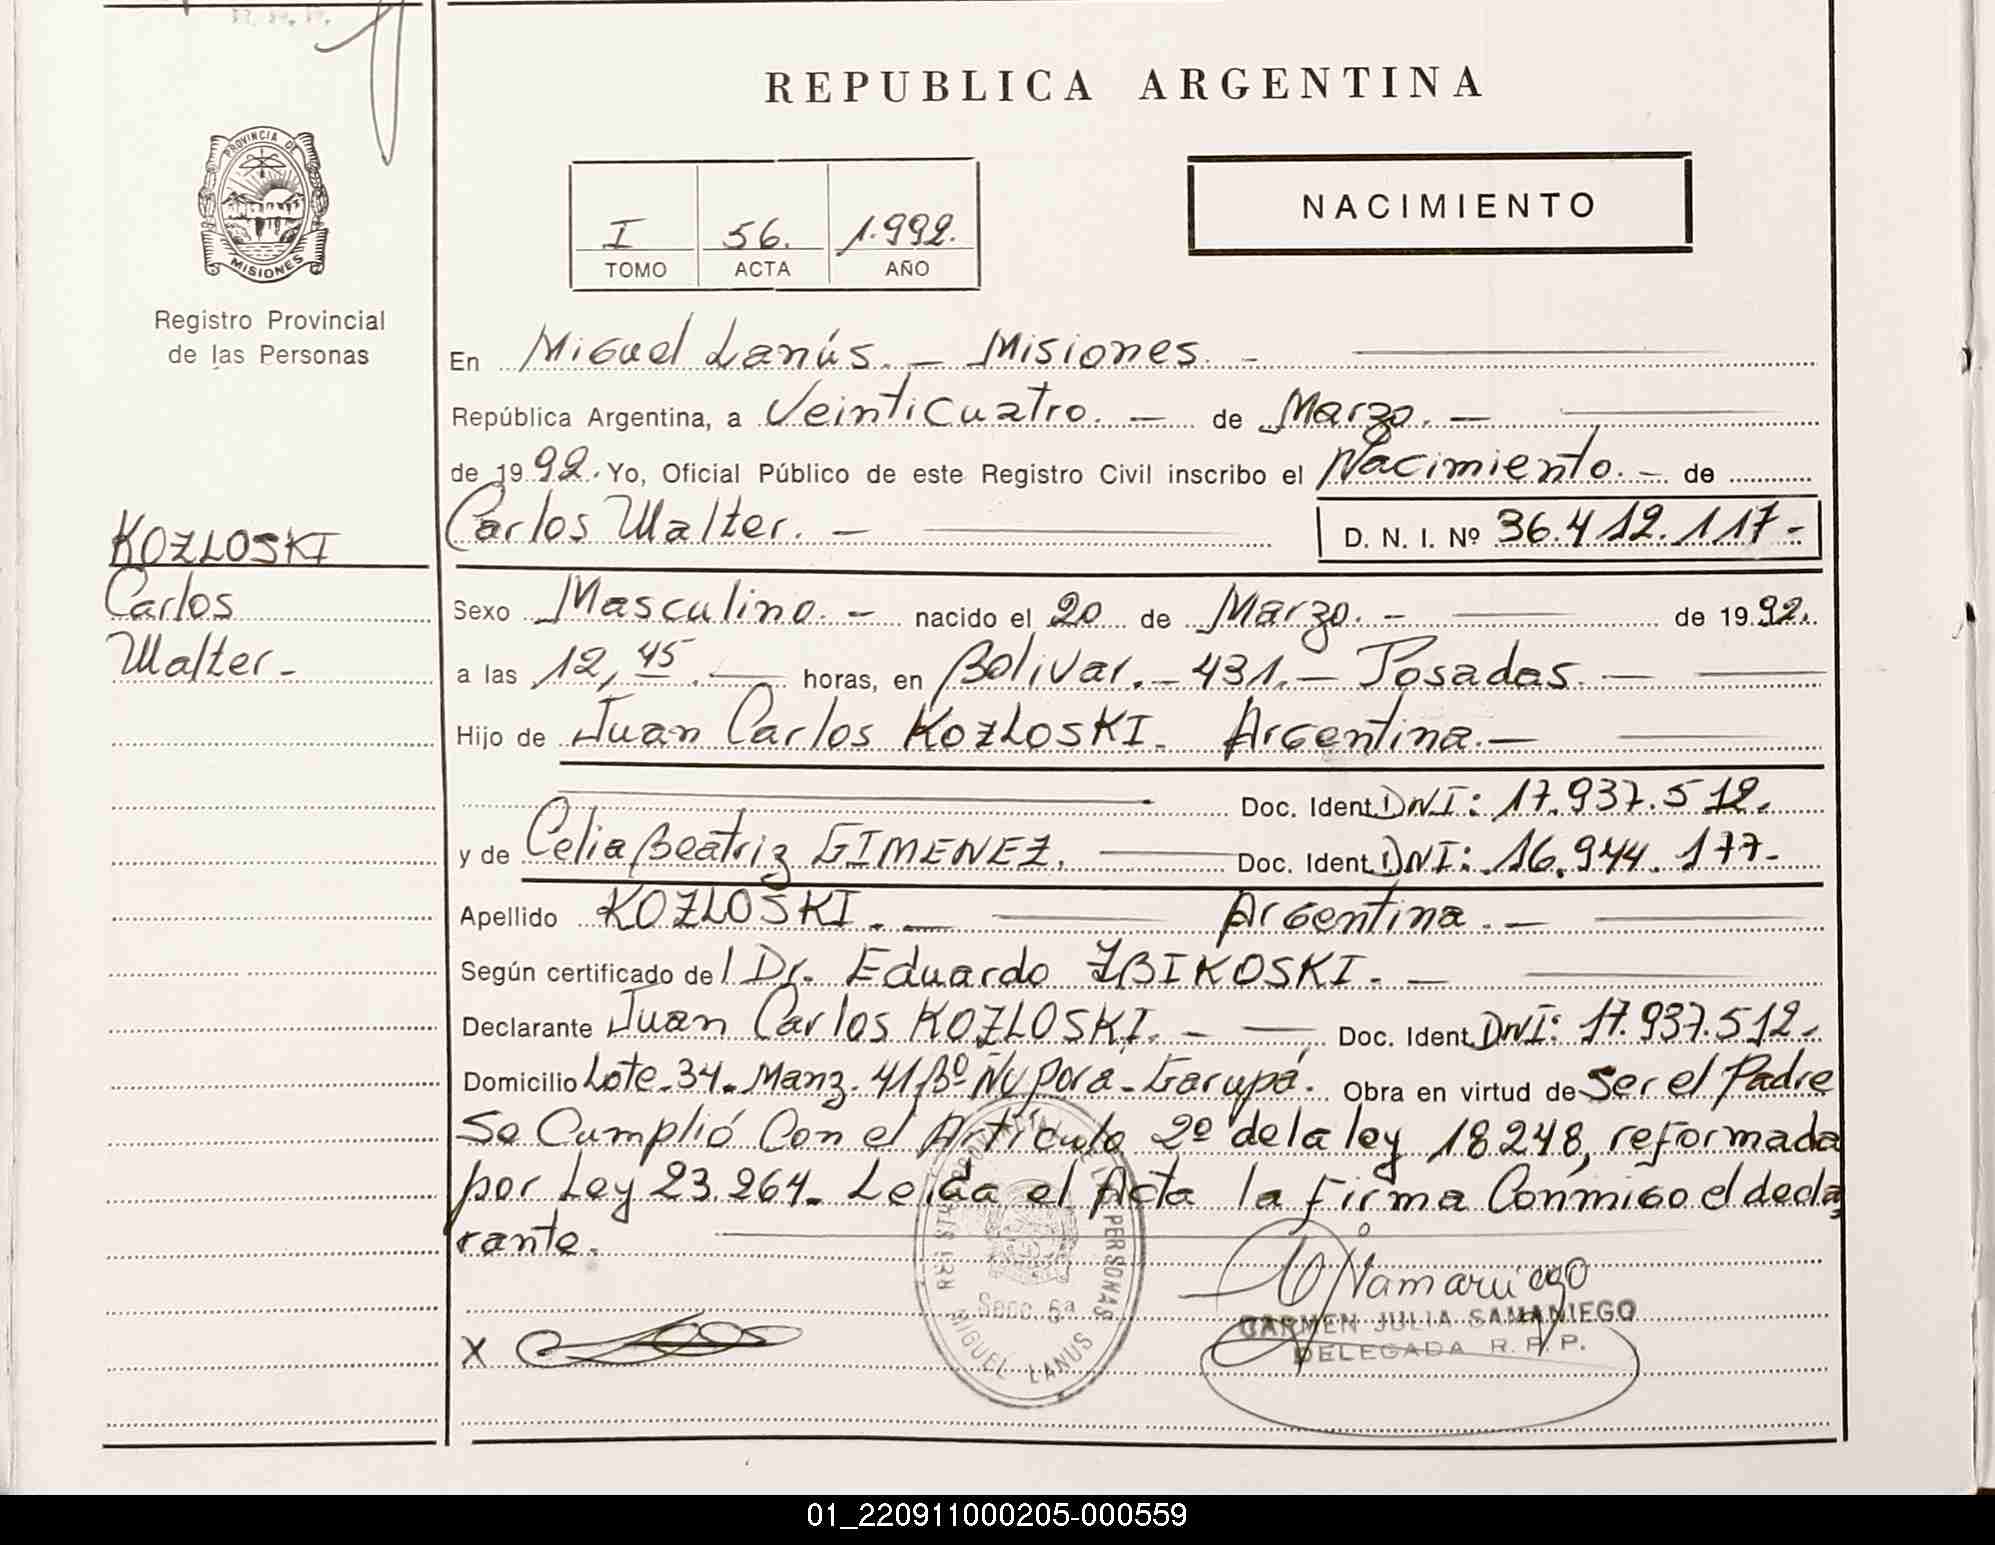 REPUBLICA ARGENTINA
PROVINCIA DE
MISIONES
Registro Provincial
de las Personas
NACIMIENTO
I 56. 1.992.
TOMO ACTA AÑO
En Miguel Lanús. - Misiones. -
República Argentina, a Veinticuatro. - de Marzo. -
de 1992. Yo, Oficial Público de este Registro Civil inscribo el Nacimiento. - de
Carlos Walter. - D. N. I. Nº 36.412.117-
KOZLOSKI
Carlos
Walter-
Sexo Masculino. - nacido el 20 de Marzo. - de 1992.
a las 12,45. horas, en Bolivar. - 431. - Posadas. -
Hijo de Juan Carlos KOZLOSKI. Argentina. -
Doc. Ident. DNI: 17.937.512.
y de Celia Beatriz GIMENEZ. Doc. Ident. DNI: 16.944.177-
Apellido KOZLOSKI. - Argentina. -
Según certificado del Dr. Eduardo ZBIKOSKI. -
Declarante Juan Carlos KOZLOSKI. - Doc. Ident. DNI: 17.937.512.
Domicilio Lote. 34. Manz. 41 Bº Ñu Pora - Garupá. Obra en virtud de Ser el Padre
Se Cumplió Con el Artículo 2º de la ley 18248, reformada
por Ley 23.264. Leída el Acta la Firma Conmigo el decla
rante.
PERSONAS
Secc. 5a
MIGUEL LANUS
X
CARMEN JULIA SAMANIEGO
DELEGADA R. P. P.
01_220911000205-000559